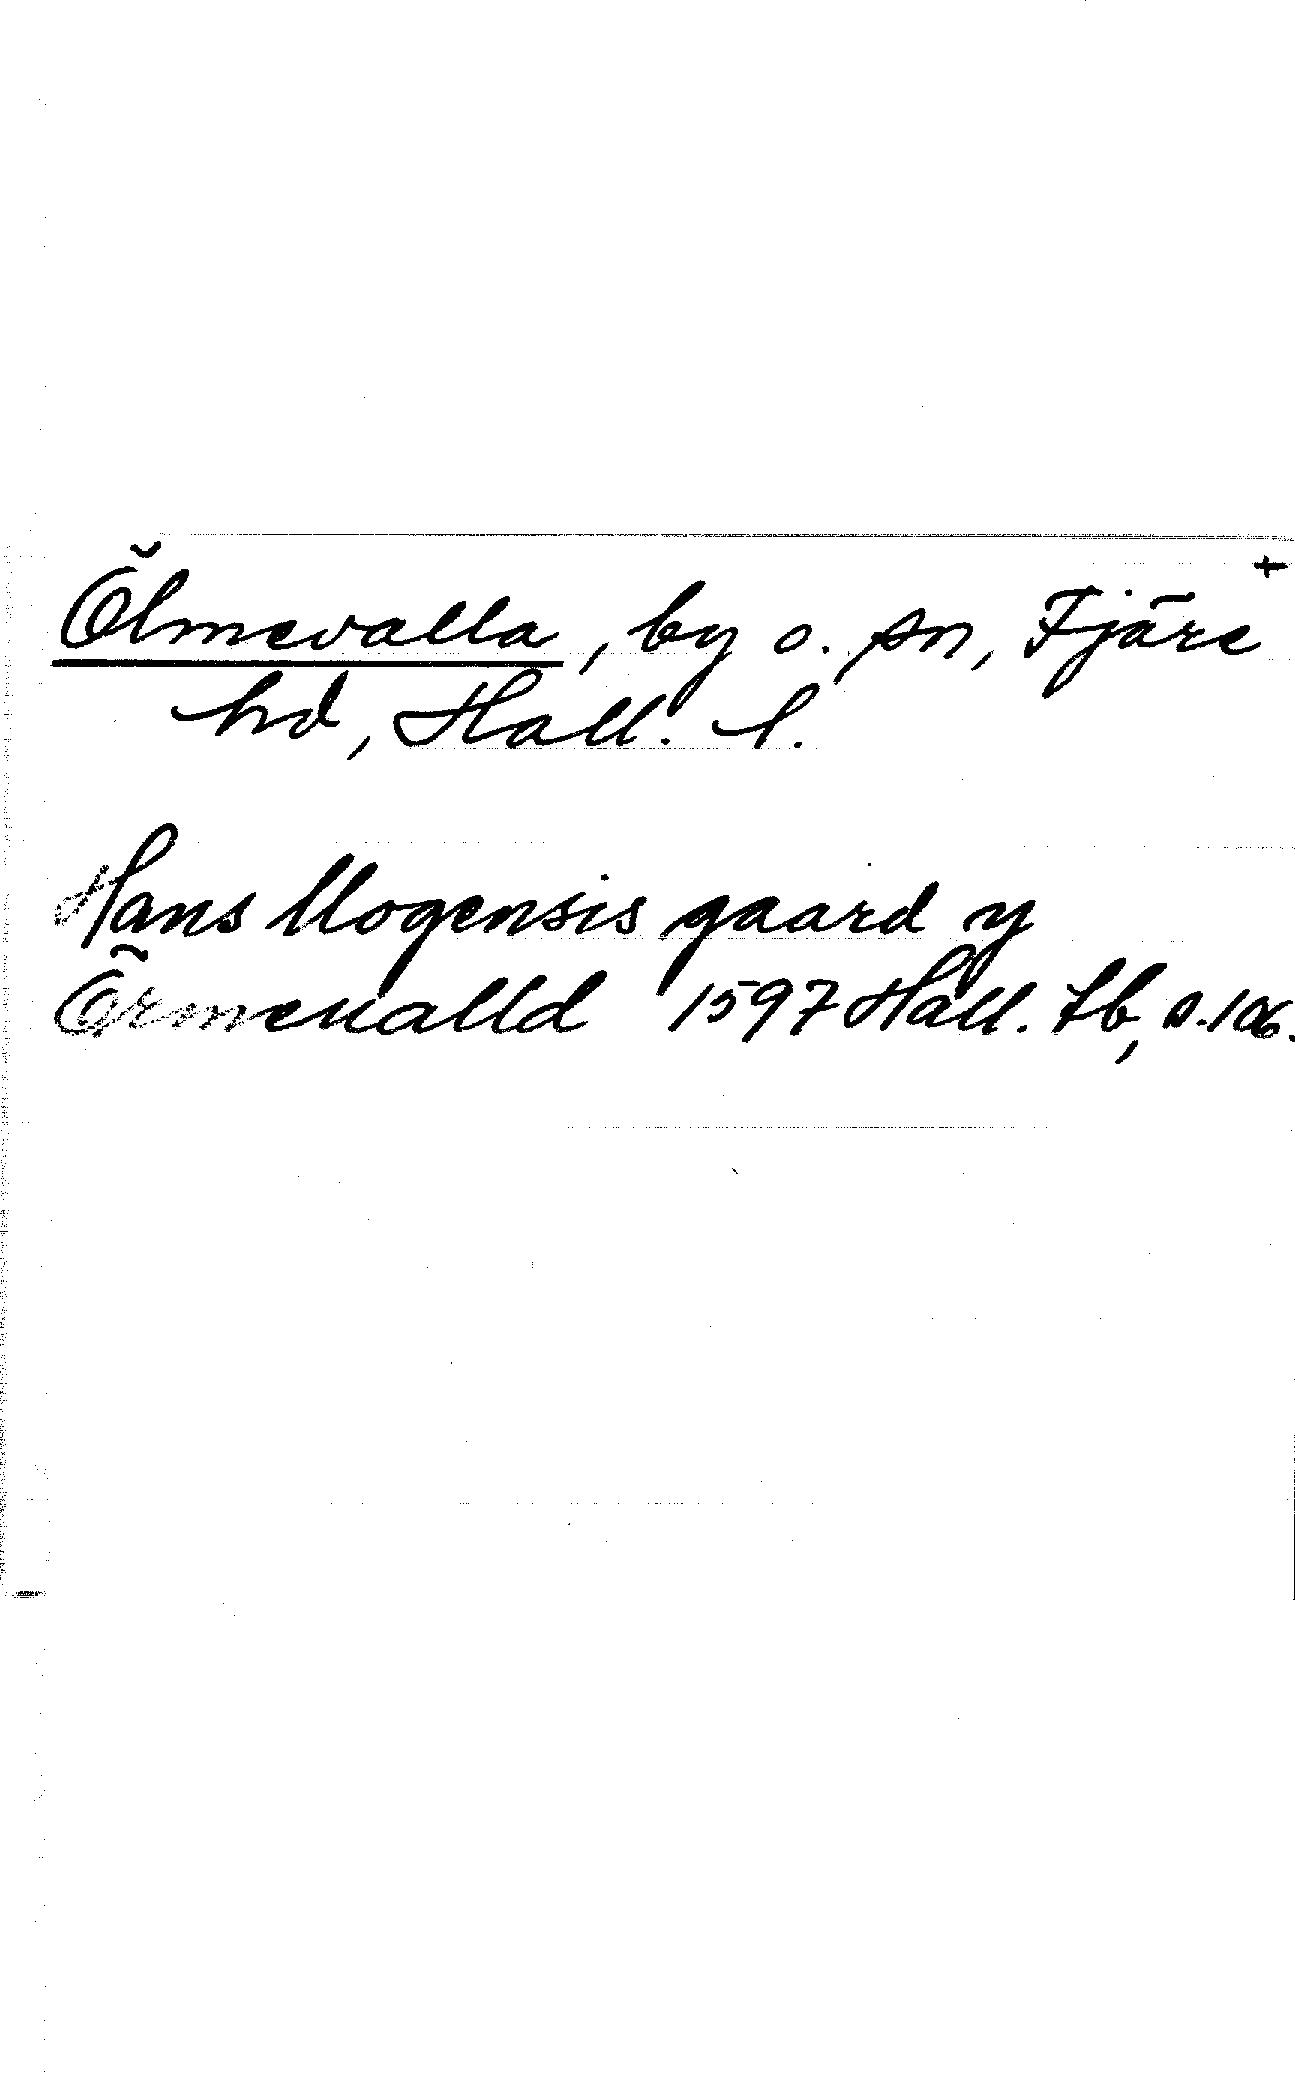 +
Ölmevalla, by o. sn, Fjäre
hd, Hall. l.
Hans Mogensis gaard y
Örmeualld 1597 Hall. Lb, s. 106.